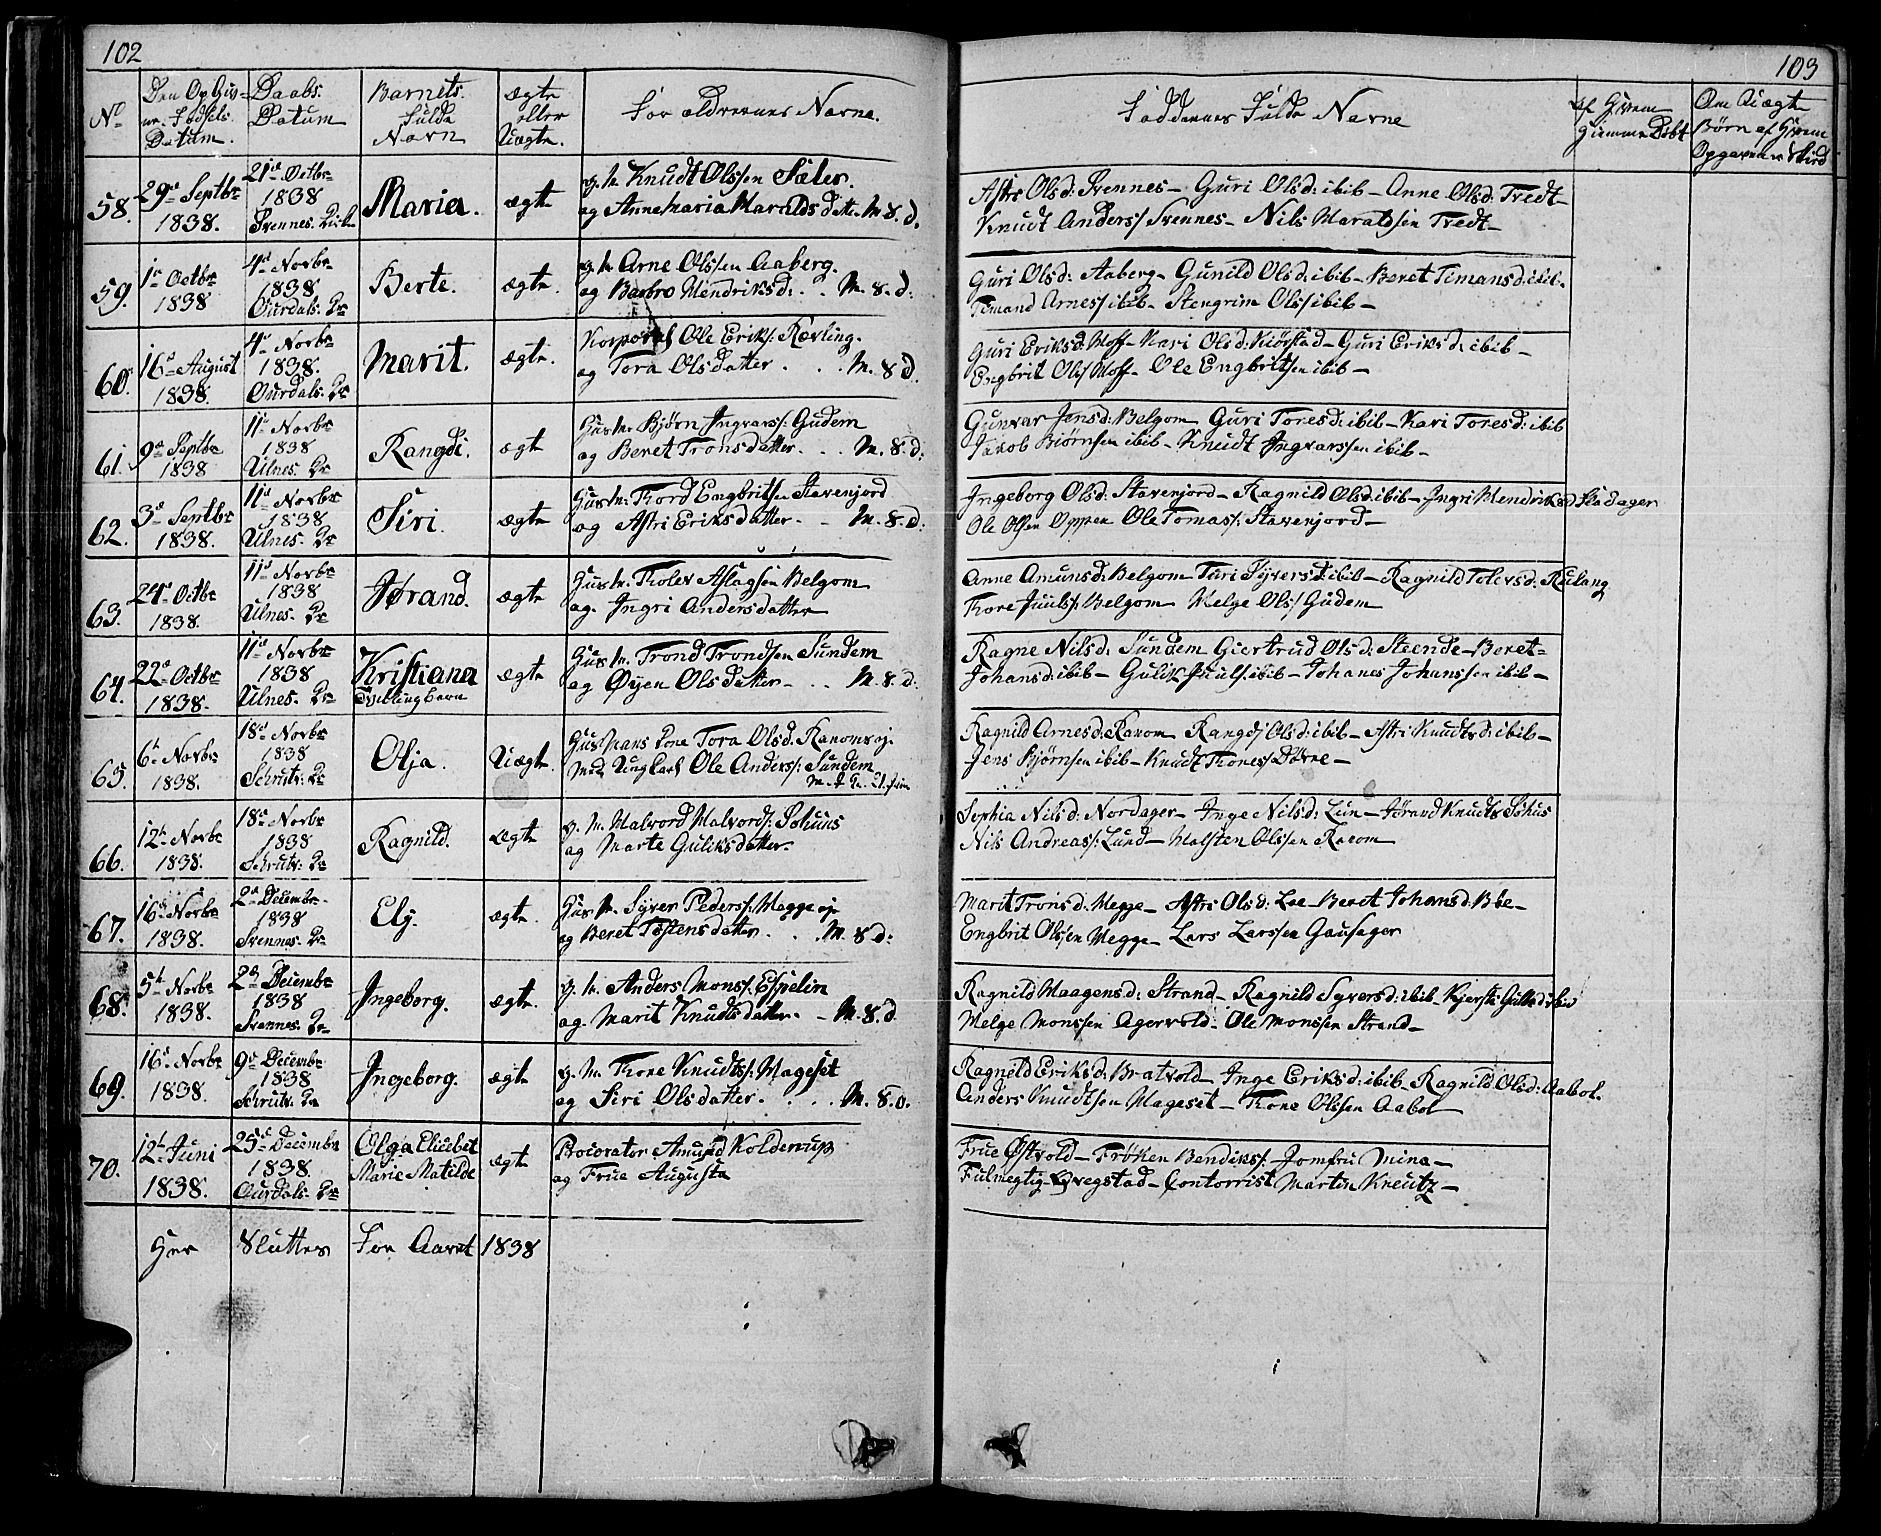 102
No
Den Opgiv=
ne Fødsels
Datum.
Daabs.
Datum
Barnets.
Fulde
Navn
ægte
eller
Uægte.
Forældrenes Navne.
58.
29de Septbr
1838.
21de Octbr
1838
Svennes. Kirke
Maria.
ægte
g. M. Knudt Olssen Sæter.
og Anne Maria Haralds datter M. 8. d.
59.
1ste Octbr
1838
4de Novbr
1838
Ourdals. Ke
Berte.
ægte.
g. M. Arne Olssen Aaberg.
og Barbro Hendriksd: . . M. 8. d:
60.
16de August
1838.
4de Novbr
1838.
Ourdals. Ke
Marit.
ægte.
Korporal Ole Eriks: Rævling.
og Tora Olsdatter . . . M. 8 d.
61.
9de Septbr
1838
11de Novbr
1838
Ulnes. Ke
Rangdi.
ægte
Husm. Bjørn Ingvars/: Gudem
og Beret Tronsdatter . . . M. 8. d:
62.
3de Septbr
1838.
11de Novbr
1838
Ulnes. Ke
Siri.
ægte
Husm: Thord Engbritsen Stavenjord
og Astri Eriksdatter. - M. 8. d:
63.
24de Octbr
1838.
11de Novbr
1838
Ulnes. Ke
Jørand.
ægte
Husm. Tholev Aslagsen Belgom
og. Ingri Andersdatter
64.
22de Octbr
1838.
11de Novbr
1838
Ulnes. Ke
Kristiana
Tvillingbarn
ægte
Husm. Trond Trondsen Sundem
og Øyen Olsdatter- . . M. 8. d:
65.
6te Novbr
1838.
18de Novbr
1838
Schrutv: Ke
Olja.
Uægte
Husmans Kone Tora Olsd. Ranomsej.
Med Ungkarl Ole Anders/: Sundem
66.
12te Novbr
1838.
18de Novbr
1838
Schrutv: Ke
Ragnild.
ægte
g. M. Halvord Halvords/: Søhuus
og Marte Guliksdatter.
67.
16de Novbr
1838.
2den Decembr
1838
Svennes. Ke
Elj.
ægte.
Husm. Syver Peders/: Heggeej
og Beret Tostensdatter . . . M. 8 d:
68.
5te Novbr
1838.
2den Decembr
1838
Svennes. Ke
Ingeborg.
ægte.
g. M. Anders Mons/: Espelin
og. Marit Knudtsdatter. - M. 8. d.
69.
16de Novbr
1838.
9de Decembr
1838
Schrutv: Ke
Ingeborg.
ægte
g. M. Thore Knudts/: Hageset
og Siri Olsdatter. . . . M. 8. d.
70.
12te Juni
1838.
25de Decembr
1838
Aurdals. Ke
Olga Elisebet
Marie Matilde
ægte
Procorator Amund Kolderup
og Frue Augusta
Her Slutter For Aaret 1838
103
Faddernes Fulde Navne
af Hvem
Hiemme Døbt
Om Uægte
Børn af Hvem
Opgaven er Skeed
Astri Olsd: Svennes- Guri Olsd: ibib- Anne Olsd: Tredt-
Knudt Anders/ Svennes- Nils Haraldsen Tredt-
Guri Olsd: Aaberg- Gunild Olsd: ibib- Beret Timansd: ibib.
Timand Arnes/ ibib- Stengrim Ols/ ibib-
Guri Eriksd: Hoff- Kari Olsd: Kiørstad- Guri Eriksd: ibib-
Engbrit Ols/ Hoff- Ole Engbritsen ibib-
Gunvar Jensd: Belgom Guri Toresd: ibib- Kari Toresd: ibib
Jakob Biørnsen ibib- Knudt Ingvarssen ibib-
Ingeborg Olsd: Stavenjord- Ragnild Olsd: ibib- Ingri Hendriksd Fladager
Ole Olsen Oppen Ole Tomas/: Stavenjord-
Anne Amunsd: Belgom Turi Syversd: ibib- Ragnild Tolevsd: Kulang
Thore Juuls/: Belgom Helge Ols/ Gudem
Ragne Nilsd: Sundem Giertrud Olsd: Steende- Beret=
Johansd: ibib- Gulik Juuls/: ibib- Johanes Johanssen ibib-
Ragnild Arnesd: Ranom Rangdj Olsd: ibib- Astri Knudtsd: ibib-
Jens Bjørnsen ibib- Knudt Thores/ Døvre-
Sophia Nilsd: Nordager- Inge Nilsd: Lun- Jørand Knudts Søhus
Nils Andreas/: Lund- Halsten Olssen Ranom
Marit Tronsd: Hegge- Astri Olsd: Lee- Beret Johansd: Bøe-
Engbrit Olssen Hegge- Lars Larssen Gausager
Ragnild Haagensd: Strand- Ragnild Syversd: ibib- Kjersti Gulbd: ibid
Helge Monssen Agervold- Ole Monssen Strand-
Ragneld Eriksd: Bratvold- Inge Eriksd: ibib- Ragnild Olsd: Aabol.
Anders Knudtsen Hageset- Thore Olssen Aabol
Frue Østvold- Frøken Bendiks/- Jomfru Mina-
Fulmegtig- Qvegstad- Contorrist Martin Kreutz-